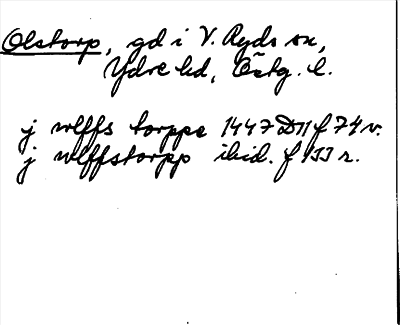 Olstorp, gd i V. Ryds sn,
Ydre hd, Östg. l.
j wlffs torppe 1447 D11 f 74 v.
j wlffstorpp ibid. f 133 r.